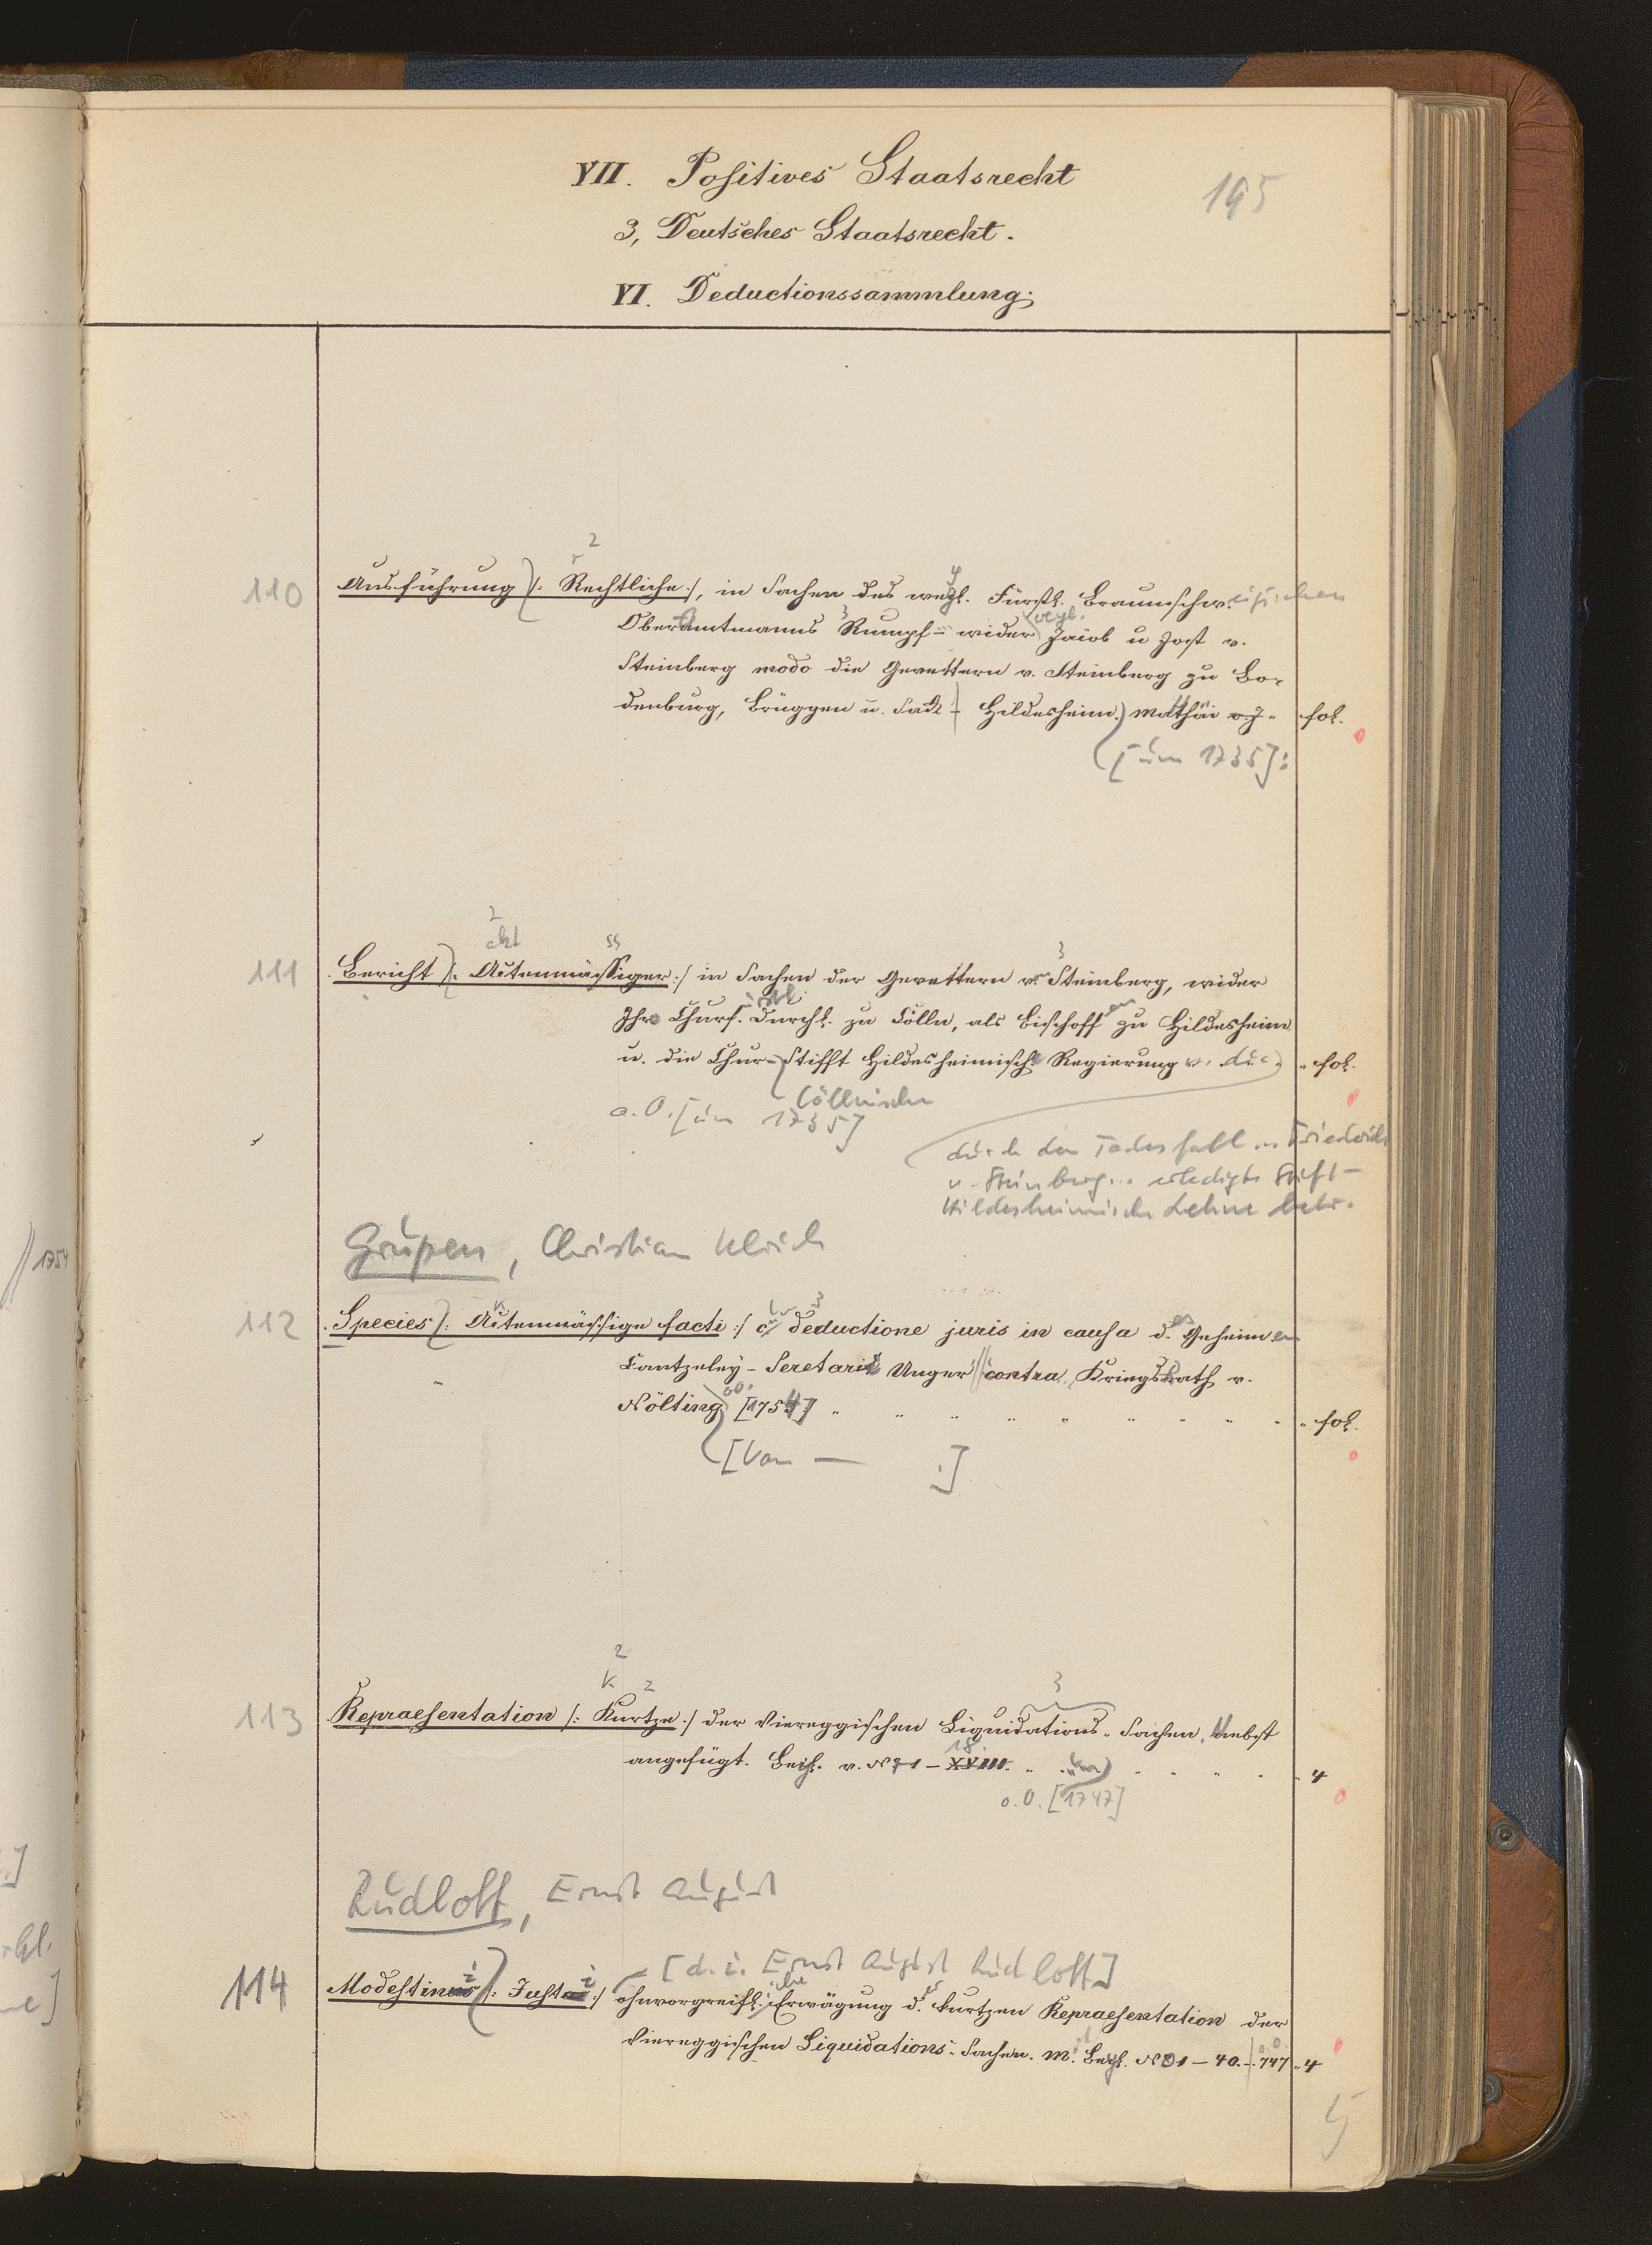 VII. Positives Staatsrecht
195
3, Deutsches Staatsrecht.
VI. Deductionssammlung.
2
110 Ausführung /: Rechtliche :/, in Sachen des weyl. Fürstl. Braunschw. eigischen
weyl.
Oberamtmanns Rumpf wider Jacob u Jost v.
Steinberg modo die Gevettern v. Steinberg zu Bo-
denburg, Brüggen u. Sack - Hildesheim. Matthäi fol.
[um 1735]:
2
akt ss 3
111 Bericht /: Actenmässiger :/ in Sachen der Gevettern v. Steinberg, wider
Ihro Churf. Durchl. zu Cölln, als Bischoffen zu Hildesheim
u. die Chur-Stifft Hildesheimische Regierung die fol.
Cöllnische
o. O. [um 1735]
durch den Todesfall Friedrich
v. Steinberg... erledigte Stift-
Hildesheimische Lehne betr.
//1754
Grupen, Christian Ulrich
3
112 Species /: Actenmässige facti :/ c. deductione juris in causa d. Geheimen
Cantzeley-Secretarii Unger contra Kriegsrath v.
Nölting [1754] fol.
[Von — .]
2
K 2 3
113 Repraesentation /: Kurtze :/ der Viereggischen Liquidations-Sachen, nebst
18.
angefügt. Beil. v. N 1 - XVIII. 4
o.O. [1747]
Rudloff, Ernst August
[d. i. Ernst August Rudloff]
114 Modestini /: Justi :/ ohnvorgreifl. Erwägung d. kurtzen Repraesentation der
Viereggischen Liquidations-Sachen. m. Beyl. N 1 - 40. - 747 4